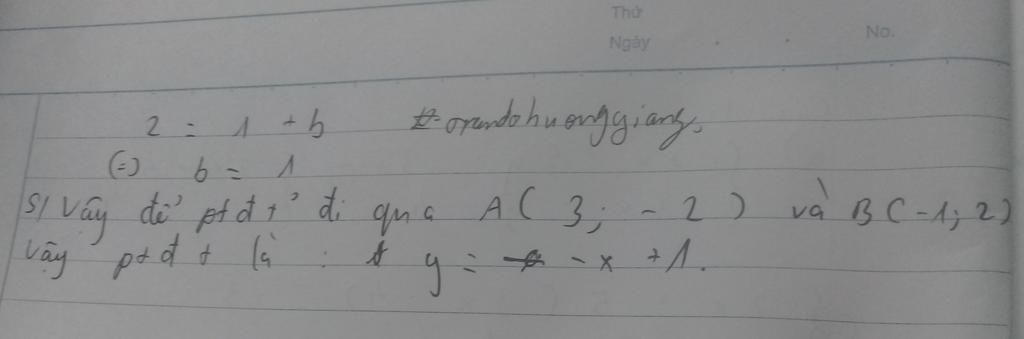 Thứ
Ngày . . No.
2 = 1 + b
(=) b = 1
S/ Vậy để ptđt đi qua A( 3; -2) và B(-1; 2)
vậy ptđt là : y = -x + 1.